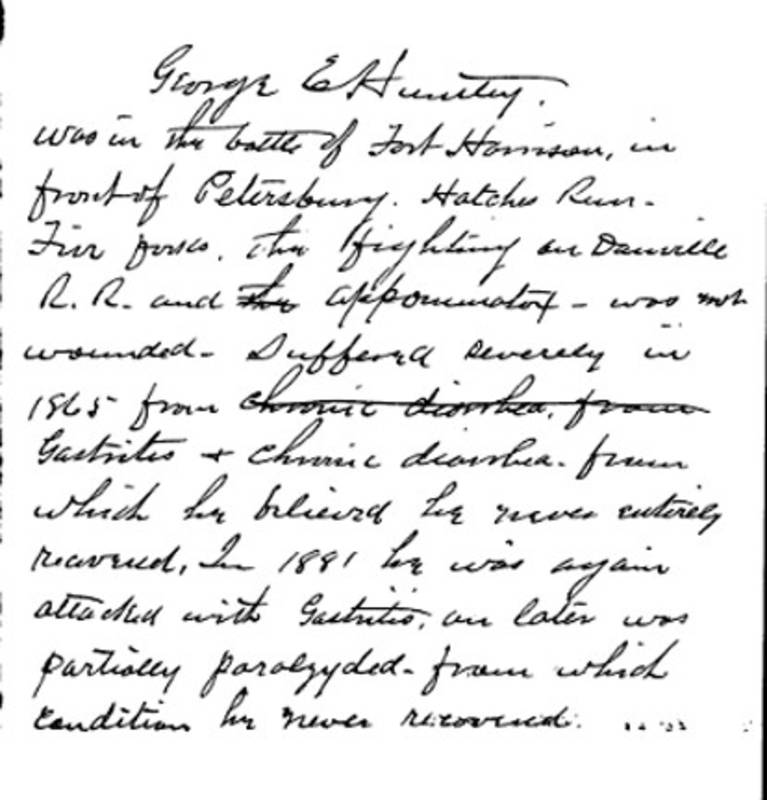 George E Huntley.
was in the battle of Fort Harrison, in
front of Petersburg. Hatches Run-
Five forks, the fighting on Danville
R. R. and the appommatox - was not
wounded - Suffered severely in
1865 from chronic diarrhea, from
Gastritis + chronic diarrhea - from
which he believed he never entirely
recovered, In 1881 he was again
attacked with Gastritis, an later was
partially paralzyded - from which
condition he never recovered.